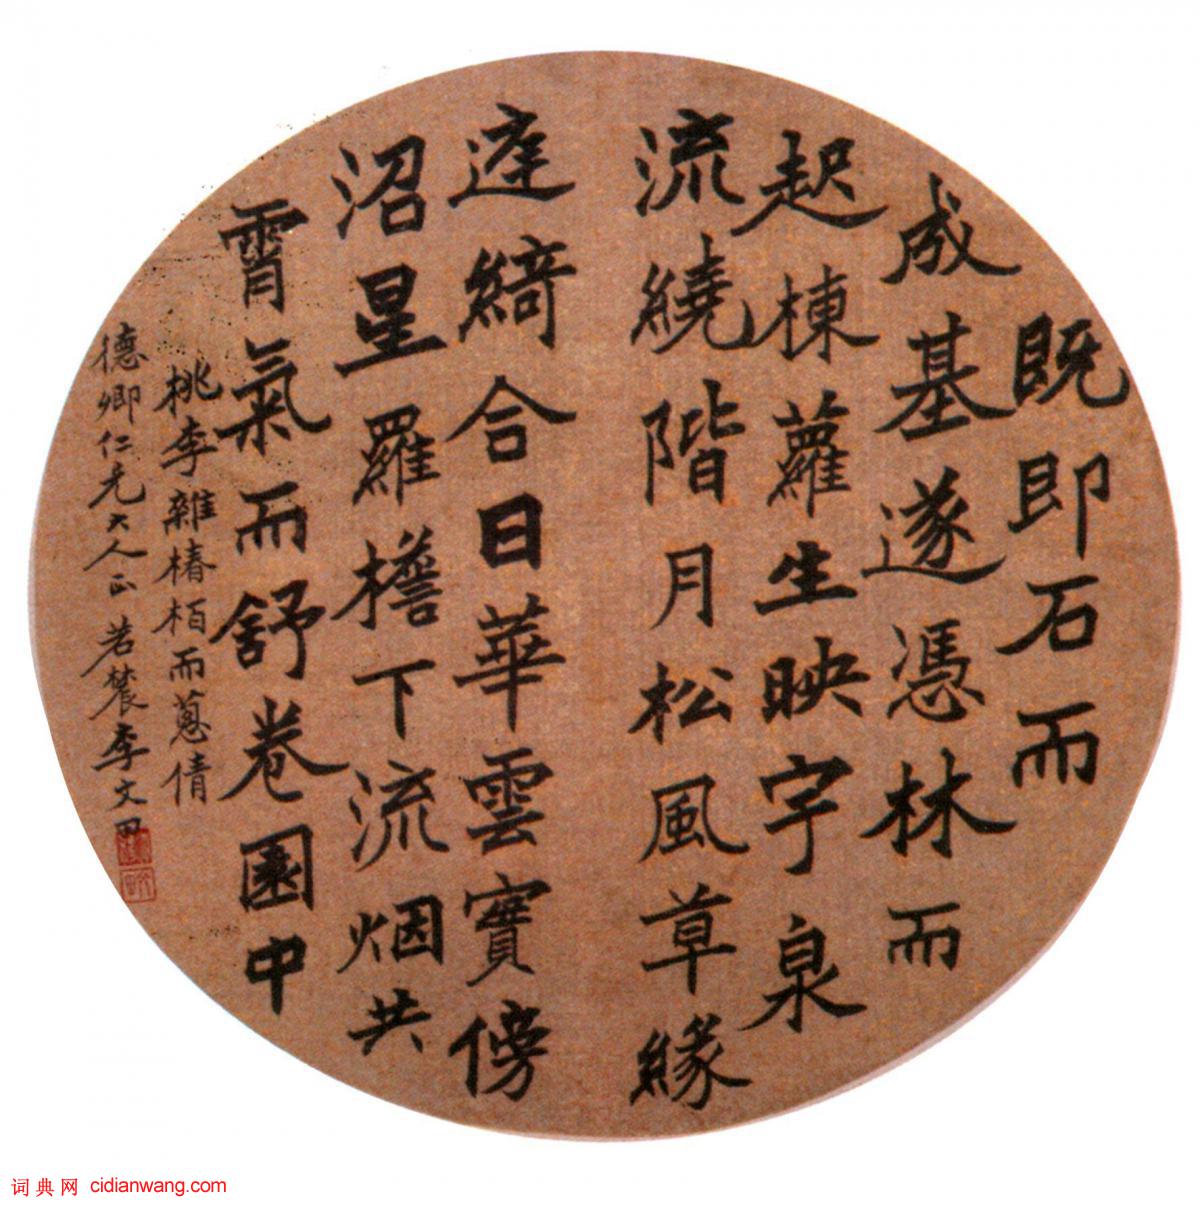 既即石而
成基遂憑林而
起棟蘿生映宇泉
流繞階月松風草緣
庭綺合日華雲實傍
沼星羅檐下流烟共
霄氣而舒卷園中
桃李雜椿栢而蔥倩
德卿仁兄大人正 若農李文田
词典网 cidianwang.com